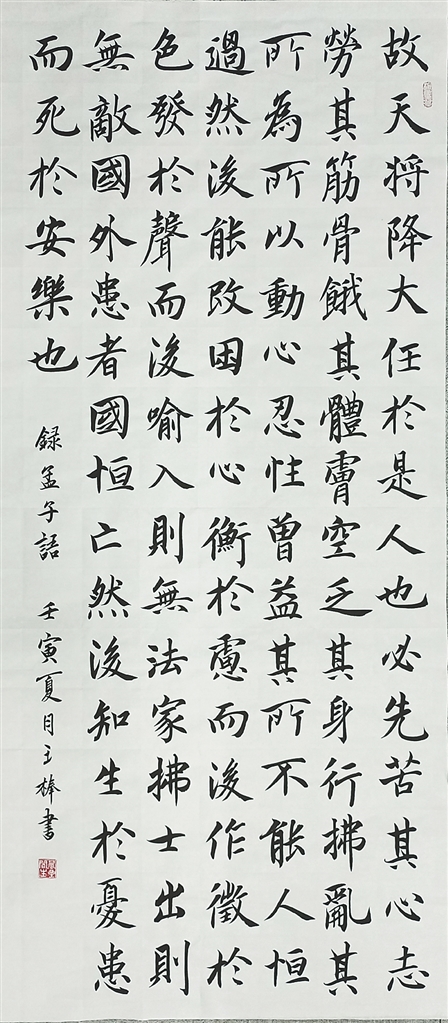 故天将降大任於是人也必先苦其心志
勞其筋骨餓其體膚空乏其身行拂亂其
所為所以動心忍性曾益其所不能人恒
過然後能改困於心衡於慮而後作徵於
色發於聲而後喻入則無法家拂士出則
無敵國外患者國恒亡然後知生於憂患
而死於安樂也
録孟子語 壬寅夏月王棒書